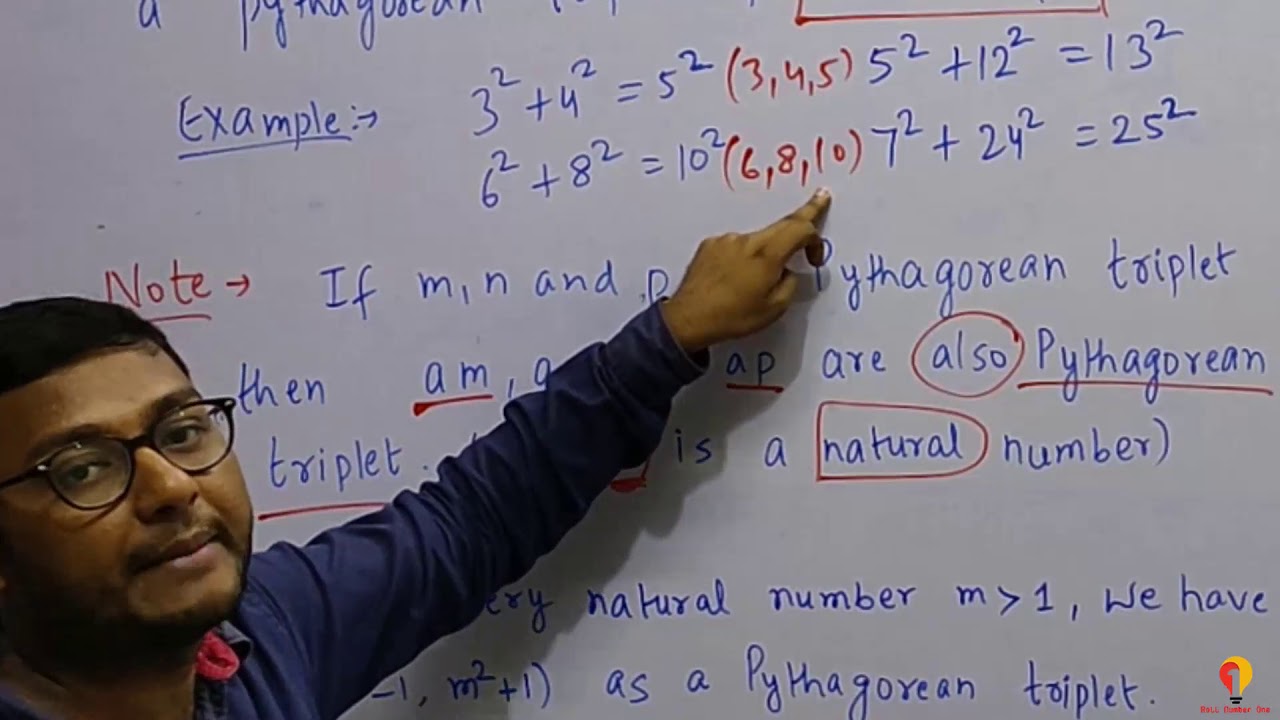 a pythagorean
Example:→ 3² + 4² = 5² (3,4,5) 5² + 12² = 13²
6² + 8² = 10² (6,8,10) 7² + 24² = 25²
Note → If m, n and p Pythagorean triplet
then am, ap are also Pythagorean
triplet. is a natural number)
natural number m > 1, we have
-1, m²+1) as a Pythagorean triplet.
Roll Number One